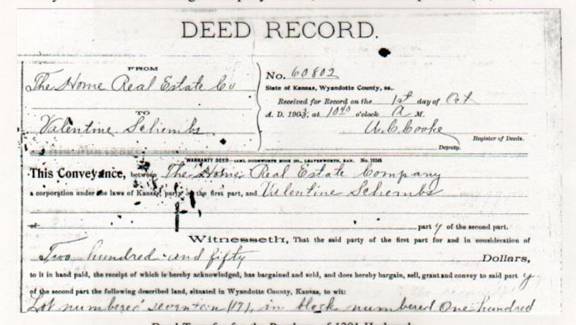 DEED RECORD.
FROM
The Home Real Estate Co
TO
Valentine Schembs
No. 60802
State of Kansas, Wyandotte County, ss.
Received for Record on the 1st day of Oct
A. D. 1903, at 10 o'clock A M.
Register of Deeds.
Deputy.
WARRANTY DEED
This Conveyance, between The Home Real Estate Company
a corporation under the laws of Kansas, party of the first part, and Valentine Schembs
of party of the second part.
Witnesseth, That the said party of the first part for and in consideration of
Two hundred and fifty Dollars,
to it in hand paid, the receipt of which is hereby acknowledged, has bargained and sold, and does hereby bargain, sell, grant and convey to said party
of the second part the following described land, situated in Wyandotte County, Kansas, to wit:
Lot numbered seventeen (17), in block numbered One hundred